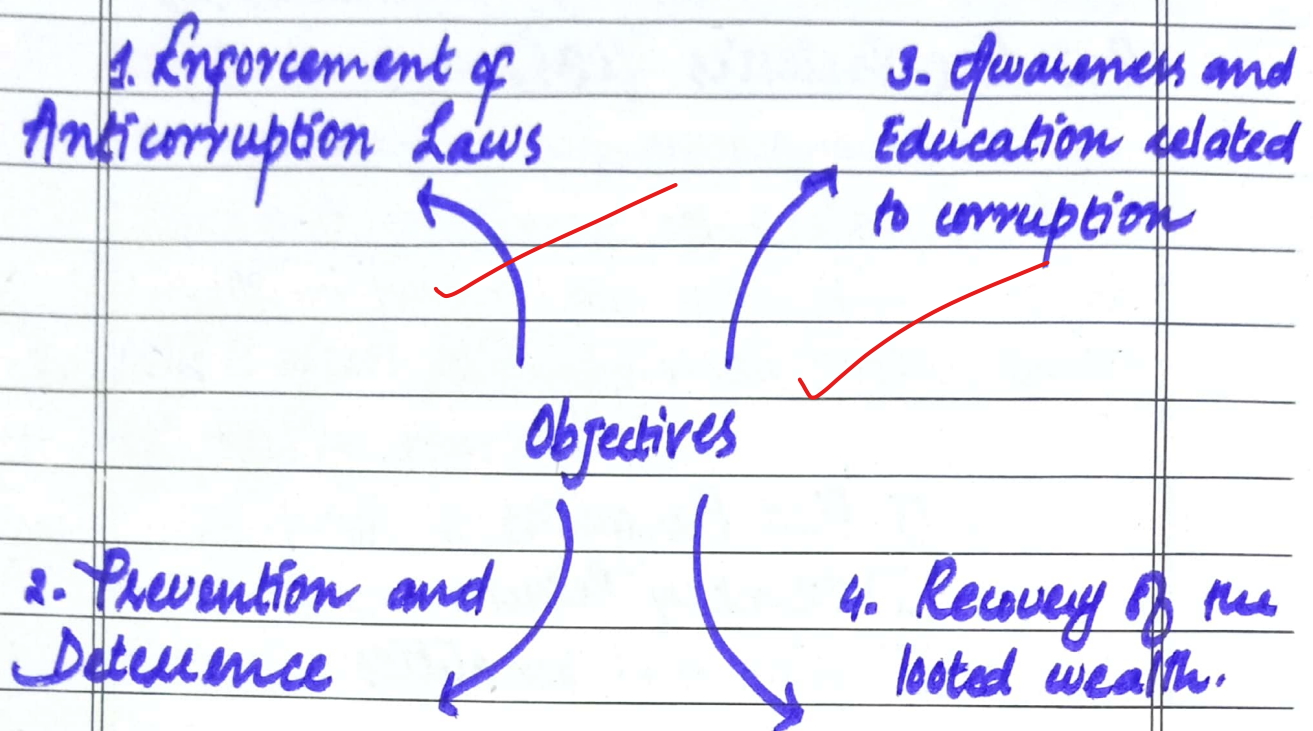 1. Enforcement of
Anticorruption Laws
3. Awareness and
Education related
to corruption
Objectives
2. Prevention and
Deterrence
4. Recovery of the
looted wealth.